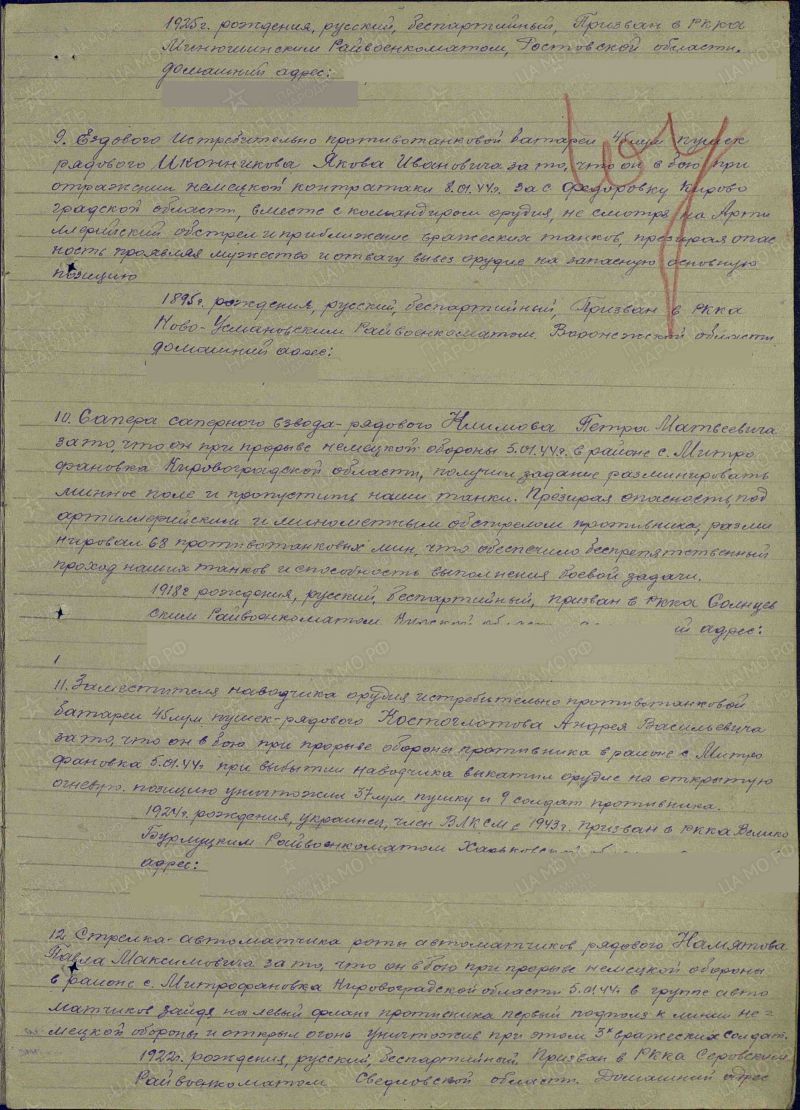 1925г. рождения, русский, беспартийный, Призван в РККА
Райвоенкоматом, Ростовской области.
домашний адрес:
9. Ездового Истребительно противотанковой батареи 45мм пушек
рядового Иконникова Якова Ивановича за то, что он в бою при
отражении немецкой контратаки 8.01.44г. за с Федоровку Кирово
градской области, вместе с командиром орудия, не смотря на Арти
ллерийский обстрел и приближение вражеских танков, презирая опас
ность проявляя мужество и отвагу вывез орудие на запасную основную
позицию
1895г. рождения, русский, беспартийный, Призван в РККА
Ново-Усмановским Райвоенкоматом Воронежской области
домашний адрес:
10. Сапера саперного взвода-рядового Климова Петра Матвеевича
за то, что он при прорыве немецкой обороны 5.01.44г. в районе с. Митро
фановка Кировоградской области, получил задание разминировать
минное поле и пропустить наши танки. Презирая опасность, под
артиллерийским и минометным обстрелом противника, разми
нировал 68 противотанковых мин, что обеспечило беспрепятственный
проход наших танков и способность выполнения боевой задачи.
1918г рождения, русский, беспартийный, призван в РККА Солнцев
ским Райвоенкоматом адрес:
11. Заместителя наводчика орудия истребительно противотанковой
батареи 45мм пушек-рядового Костоглотова Андрея Васильевича
за то, что он в бою при прорыве обороны противника в районе с Митро
фановка 5.01.44г при выбытии наводчика выкатил орудие на открытую
огневую позицию уничтожил 37мм. пушку и 9 солдат противника.
1924г. рождения, украинец, член ВЛКСМ с 1943г. призван в РККА Велико
Бурлуцким Райвоенкоматом Харьковской
адрес:
12 Стрелка-автоматчика роты автоматчиков рядового Намятова
Павла Максимовича за то, что он в бою при прорыве немецкой обороны
в районе с. Митрофановка Кировоградской области 5.01.44г в группе авто
матчиков зайдя на левый фланг противника первый подполз к линии не-
мецкой обороны и открыл огонь уничтожив при этом 3х вражеских солдат.
1922г. рождения, русский, беспартийный. Призван в РККА Серовским
Райвоенкоматом Свердловской области. Домашний адрес